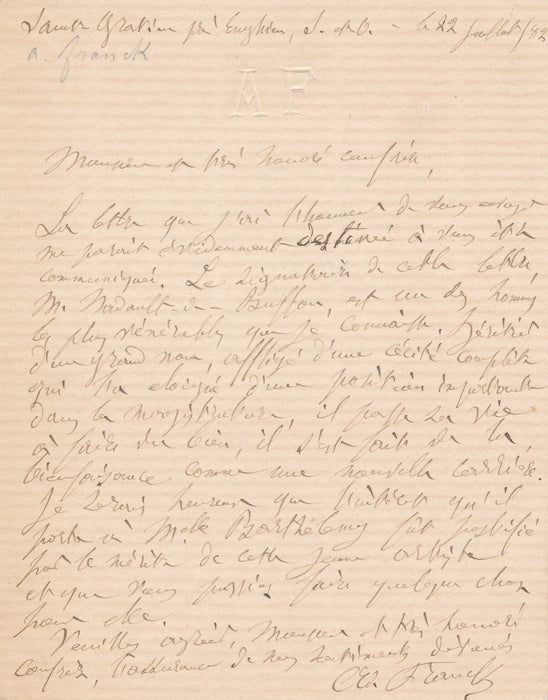 Saint Gratien près Enghien, S. et O. - le 22 juillet/82
A. Franck
AF
Monsieur et très honoré confrère,
La lettre que j'ai l'honneur de vous envoyer
me parait évidemment destinée à vous être
communiquée. Le signataire de cette lettre,
M. Nadault-de-Buffon, est un des hommes
les plus vénérables que je connaisse. Héritier
d'un grand nom, affligé d'une cécité complète
qui l'a eloigné d'une position importante
dans la magistrature, il passe sa vie
à faire du bien, il s'est fait de la
bienfaisance comme une nouvelle carrière.
Je serais heureux que l'intérêt qu'il
porte à Melle Barthélemy fût justifié
par le mérite de cette jeune artiste
et que vous puissiez faire quelque chose
pour elle.
Veuillez agréer, Monsieur et très honoré
confrère, l'assurance de mes sentiments dévoués
Ad. Franck